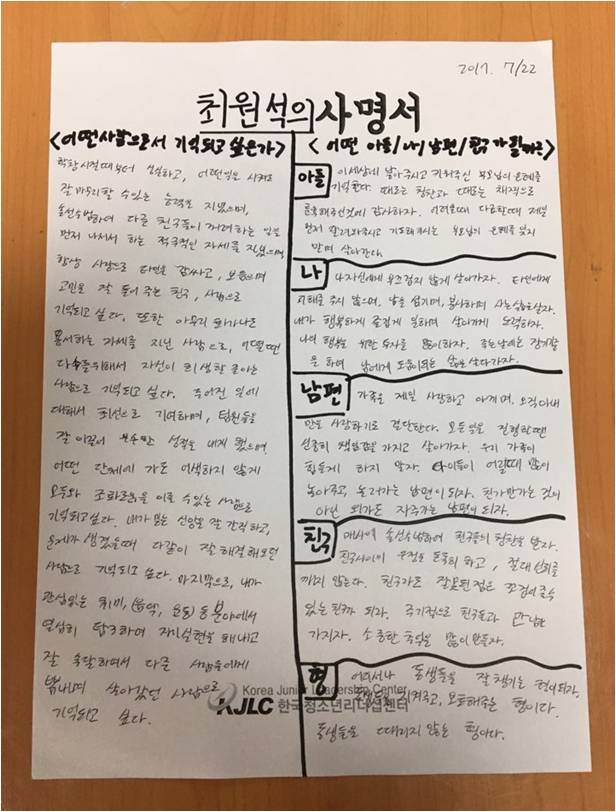 2017. 7/22
최원석의 사명서
<어떤사람으로서 기억되고 싶은가>
학창시절때부터 성실하고, 어떤일을 시켜도
잘 마무리할 수 있는 능력을 지녔으며,
솔선수범하여 다른 친구들이 꺼려하는 일을
먼저 나서서 하는 적극적인 자세를 지녔으며
항상 사랑으로 타인을 감싸고, 보듬으며
고민을 잘 들어 주는 친구, 사람으로
기억되고 싶다. 또한 아무리 화가나도
용서하는 자세를 지닌 사람으로, 어떨땐
다수를위해서 자신이 희생할 줄아는
사람으로 기억되고 싶다. 주어진 일에
대해서 최선으로 기여하며, 팀원들을
잘 이끌어 성적을 내게 했으며
어떤 단체에 가도 어색하지 않게
모두와 조화로움을 이룰 수 있는 사람으로
기억되고 싶다. 내가 믿는 신앙을 잘 간직하고,
문제가 생겼을때 다같이 잘 해결해보려던
사람으로 기억되고 싶다. 마지막으로, 내가
관심있는 취미, (음악, 운동) 등 분야에서
열심히 탐구하며 자아실현을 해내고
잘 숙달하여서 다른 사람들에게
뽐내며 살아갔던 사람으로
기억되고 싶다.
<어떤 아들/나/남편/친구가 될까는>
아들
이세상에 낳아주시고 키워주신 부모님의 은혜를
기억한다. 때로는 칭찬과 때로는 채찍으로
훈육해주신것에 감사하자. 어려울때 다급할때 제일
먼저 달려와주시고 기도해주시는 부모님의 은혜를 잊지
말며 살아간다.
나
나 자신에게 부끄럽지 않게 살아가자. 타인에게
피해를 주지 않으며, 남을 섬기며, 봉사하며 사는 삶으로살자.
내가 행복하게 즐겁게 일하며 살아가게 노력하자.
나의 행복을 위한 투자를 많이하자. 좋은날에는 장기기증
을 하며 남에게 도움이되는 삶을 살다가자.
남편
가족을 제일 사랑하고 아끼며, 오직아내
만을 사랑하기로 결단한다. 모든일을 진행할땐
신중히 책임감을 가지고 살아가자. 우리 가족이
힘들게 하지 말자. 아이들이 어릴때 많이
놀아주고, 놀러가는 남편이 되자. 친가만가는 것이
아닌 외가도 자주가는 남편이되자.
친구
매사에 솔선수범하여 친구들의 칭찬을 받자.
친구사이의 우정을 돈독히 하고, 절대 신뢰를
깨지 않는다. 친구가도 잘못된점은 꼬집어줄수
있는 친구가 되자. 주기적으로 친구들과 만남을
가지자. 소중한 추억을 많이 만들자.
형
어디서나 동생들을 잘 챙기는 형이되자.
동생들을 지켜주고, 보호해주는 형이다.
동생들을 때리지 않는 형이다.
Korea Junior Leadership Center
KJLC 한국청소년리더십센터